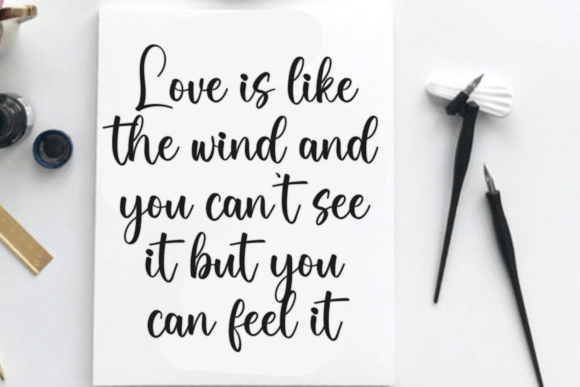 Love is like
the wind and
you can't see
it but you
can feel it